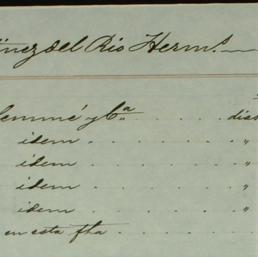 ínez del Rio Herm.s
lemmé y C.a . . . . . . dis
idem . . . . . . "
idem . . . . . . "
idem . . . . . . "
idem . . . . . . "
en esta fha